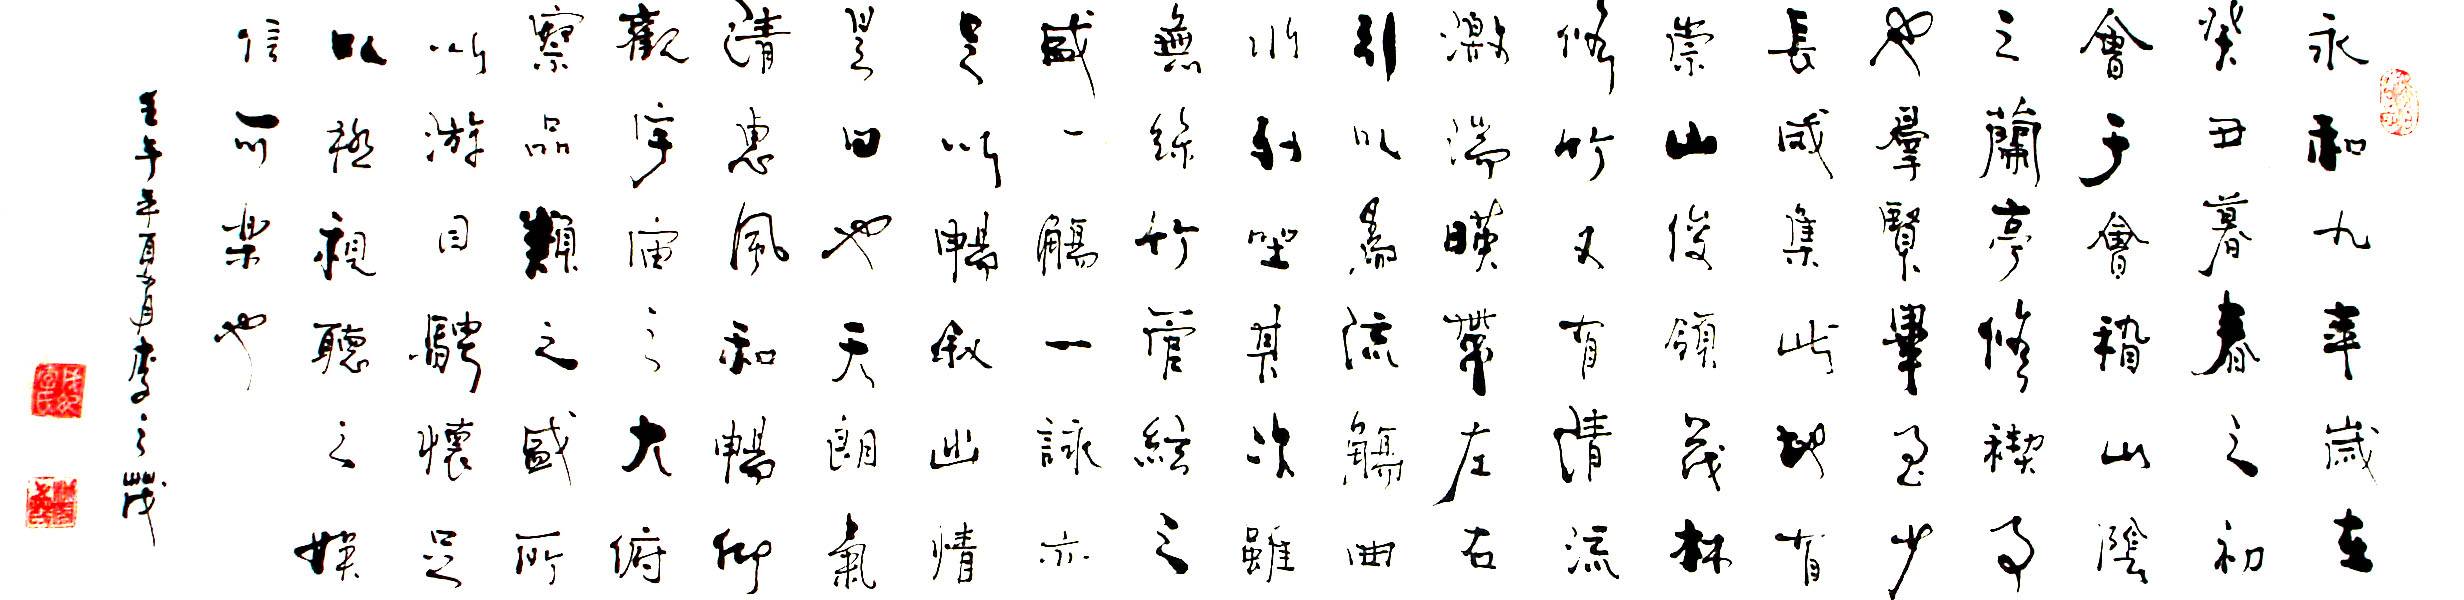 永和九年歲在
癸丑暮春之初
會于會稽山陰
之蘭亭脩禊事
也羣賢畢至少
長咸集此地有
崇山俊領茂林
脩竹又有清流
激湍暎帶左右
引以為流觴曲
水列坐其次雖
無絲竹管絃之
盛一觴一詠亦
足以暢叙幽情
是日也天朗氣
清惠風和暢仰
觀宇宙之大俯
察品類之盛所
以游目騁懷足
以極視聽之娛
信可樂也
壬午年夏月李之茂